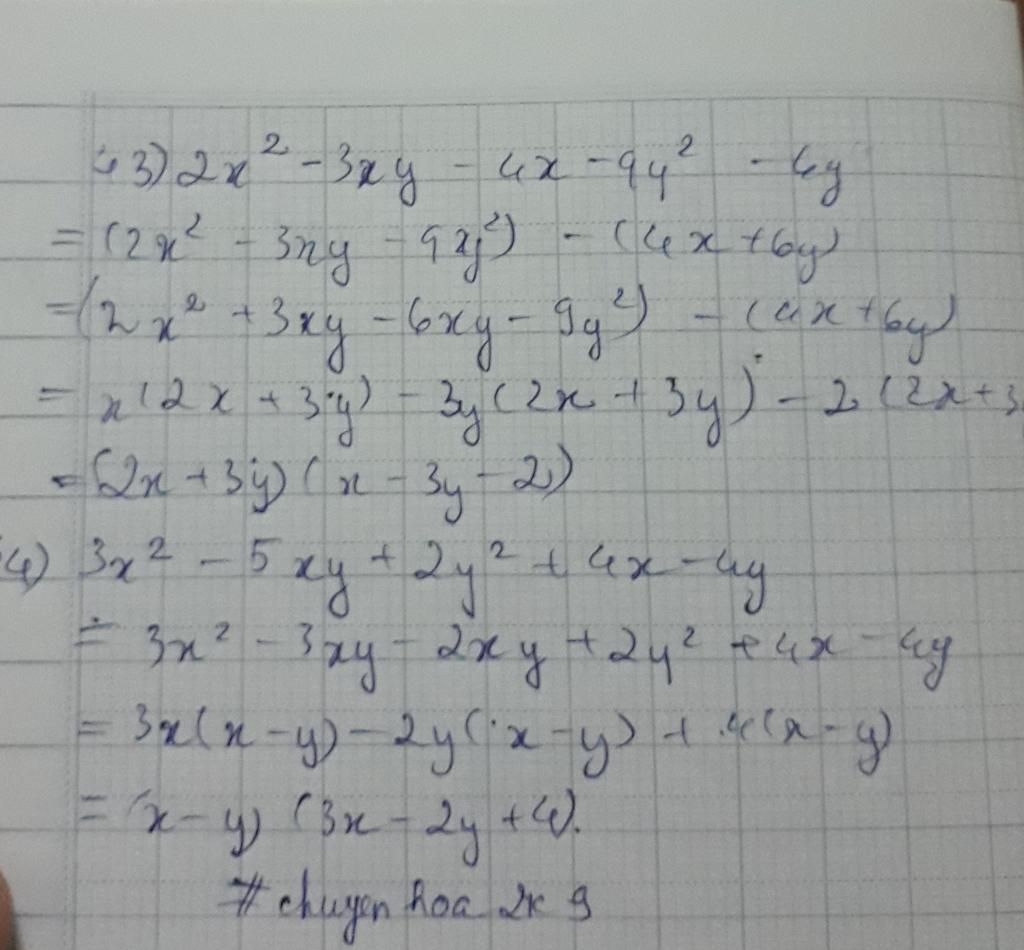 3) 2x² - 3xy - 4x - 9y² - 6y
= (2x² - 3xy - 9y²) - (4x + 6y)
= (2x² + 3xy - 6xy - 9y²) - (4x + 6y)
= x(2x + 3y) - 3y(2x + 3y) - 2(2x + 3
= (2x + 3y)(x - 3y - 2)
4) 3x² - 5xy + 2y² + 4x - 4y
= 3x² - 3xy - 2xy + 2y² + 4x - 4y
= 3x(x - y) - 2y(x - y) + 4(x - y)
= (x - y)(3x - 2y + 4).
# chuyen hoa 2k9